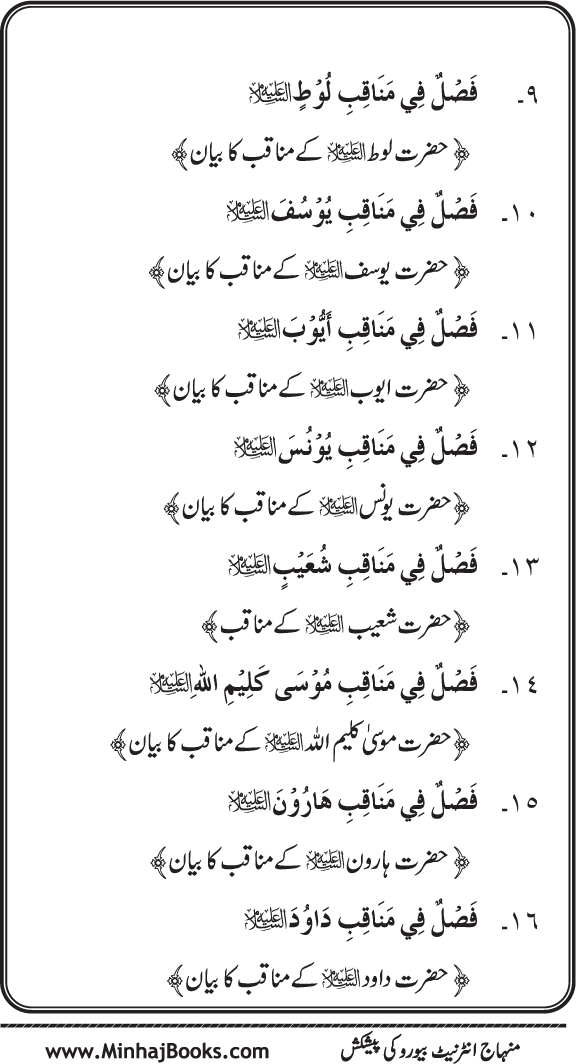 ٩۔ فَصْلٌ فِي مَنَاقِبِ لُوْطٍ علیہ السلام
﴿حضرت لوط علیہ السلام کے مناقب کا بیان﴾
١٠۔ فَصْلٌ فِي مَنَاقِبِ يُوْسُفَ علیہ السلام
﴿حضرت یوسف علیہ السلام کے مناقب کا بیان﴾
١١۔ فَصْلٌ فِي مَنَاقِبِ أَيُّوْبَ علیہ السلام
﴿حضرت ایوب علیہ السلام کے مناقب کا بیان﴾
١٢۔ فَصْلٌ فِي مَنَاقِبِ يُوْنُسَ علیہ السلام
﴿حضرت یونس علیہ السلام کے مناقب کا بیان﴾
١٣۔ فَصْلٌ فِي مَنَاقِبِ شُعَيْبٍ علیہ السلام
﴿حضرت شعیب علیہ السلام کے مناقب﴾
١٤۔ فَصْلٌ فِي مَنَاقِبِ مُوْسَى كَلِيْمِ اللهِ علیہ السلام
﴿حضرت موسیٰ کلیم اللہ علیہ السلام کے مناقب کا بیان﴾
١٥۔ فَصْلٌ فِي مَنَاقِبِ هَارُوْنَ علیہ السلام
﴿حضرت ہارون علیہ السلام کے مناقب کا بیان﴾
١٦۔ فَصْلٌ فِي مَنَاقِبِ دَاوُدَ علیہ السلام
﴿حضرت داود علیہ السلام کے مناقب کا بیان﴾
منہاج انٹرنیٹ بیورو کی پیشکش www.MinhajBooks.com